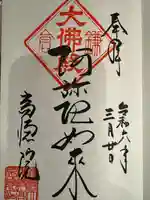 奉拝
令和六年
三月廿日
大佛殿
阿弥陀如来
高徳院